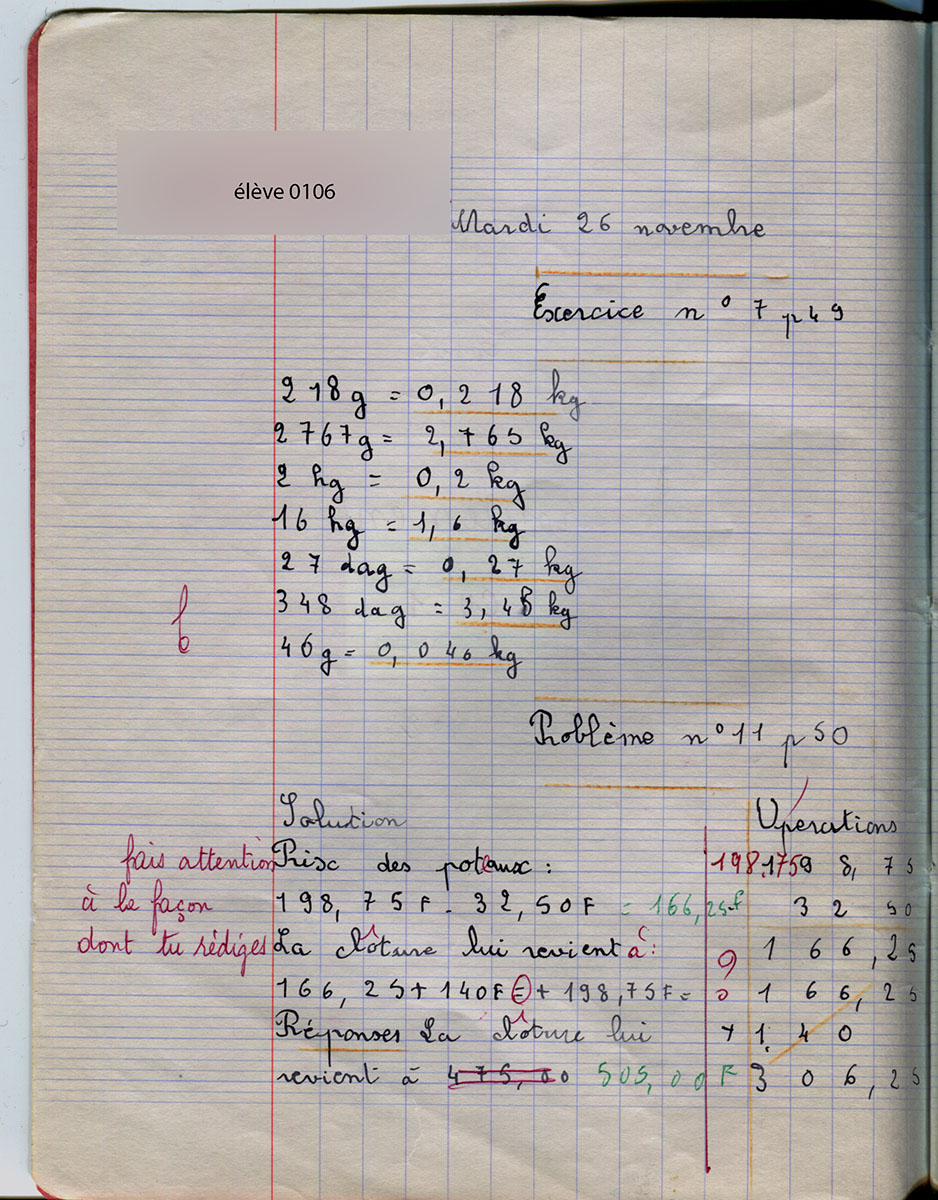 élève 0106
Mardi 26 novembre
Exercice n° 7 p 49
218g = 0,218 kg
2767g = 2,765 kg
2 hg = 0,2 kg
16 hg = 1,6 kg
27 dag = 0,27 kg
348 dag = 3,48 kg
46g = 0,046 kg
Problème n° 11 p 50
Solution
Opérations
fais attention
à la façon
dont tu rédiges
Prix des poteaux :
198,75F - 32,50F = 166,25F
La clôture lui revient à :
166,25 + 140F = + 198,75F =
Réponses La clôture lui
revient à 475,00 505,00F
198,75
9 8,75
32 50
166,25
166,25
+ 1 40
306,25